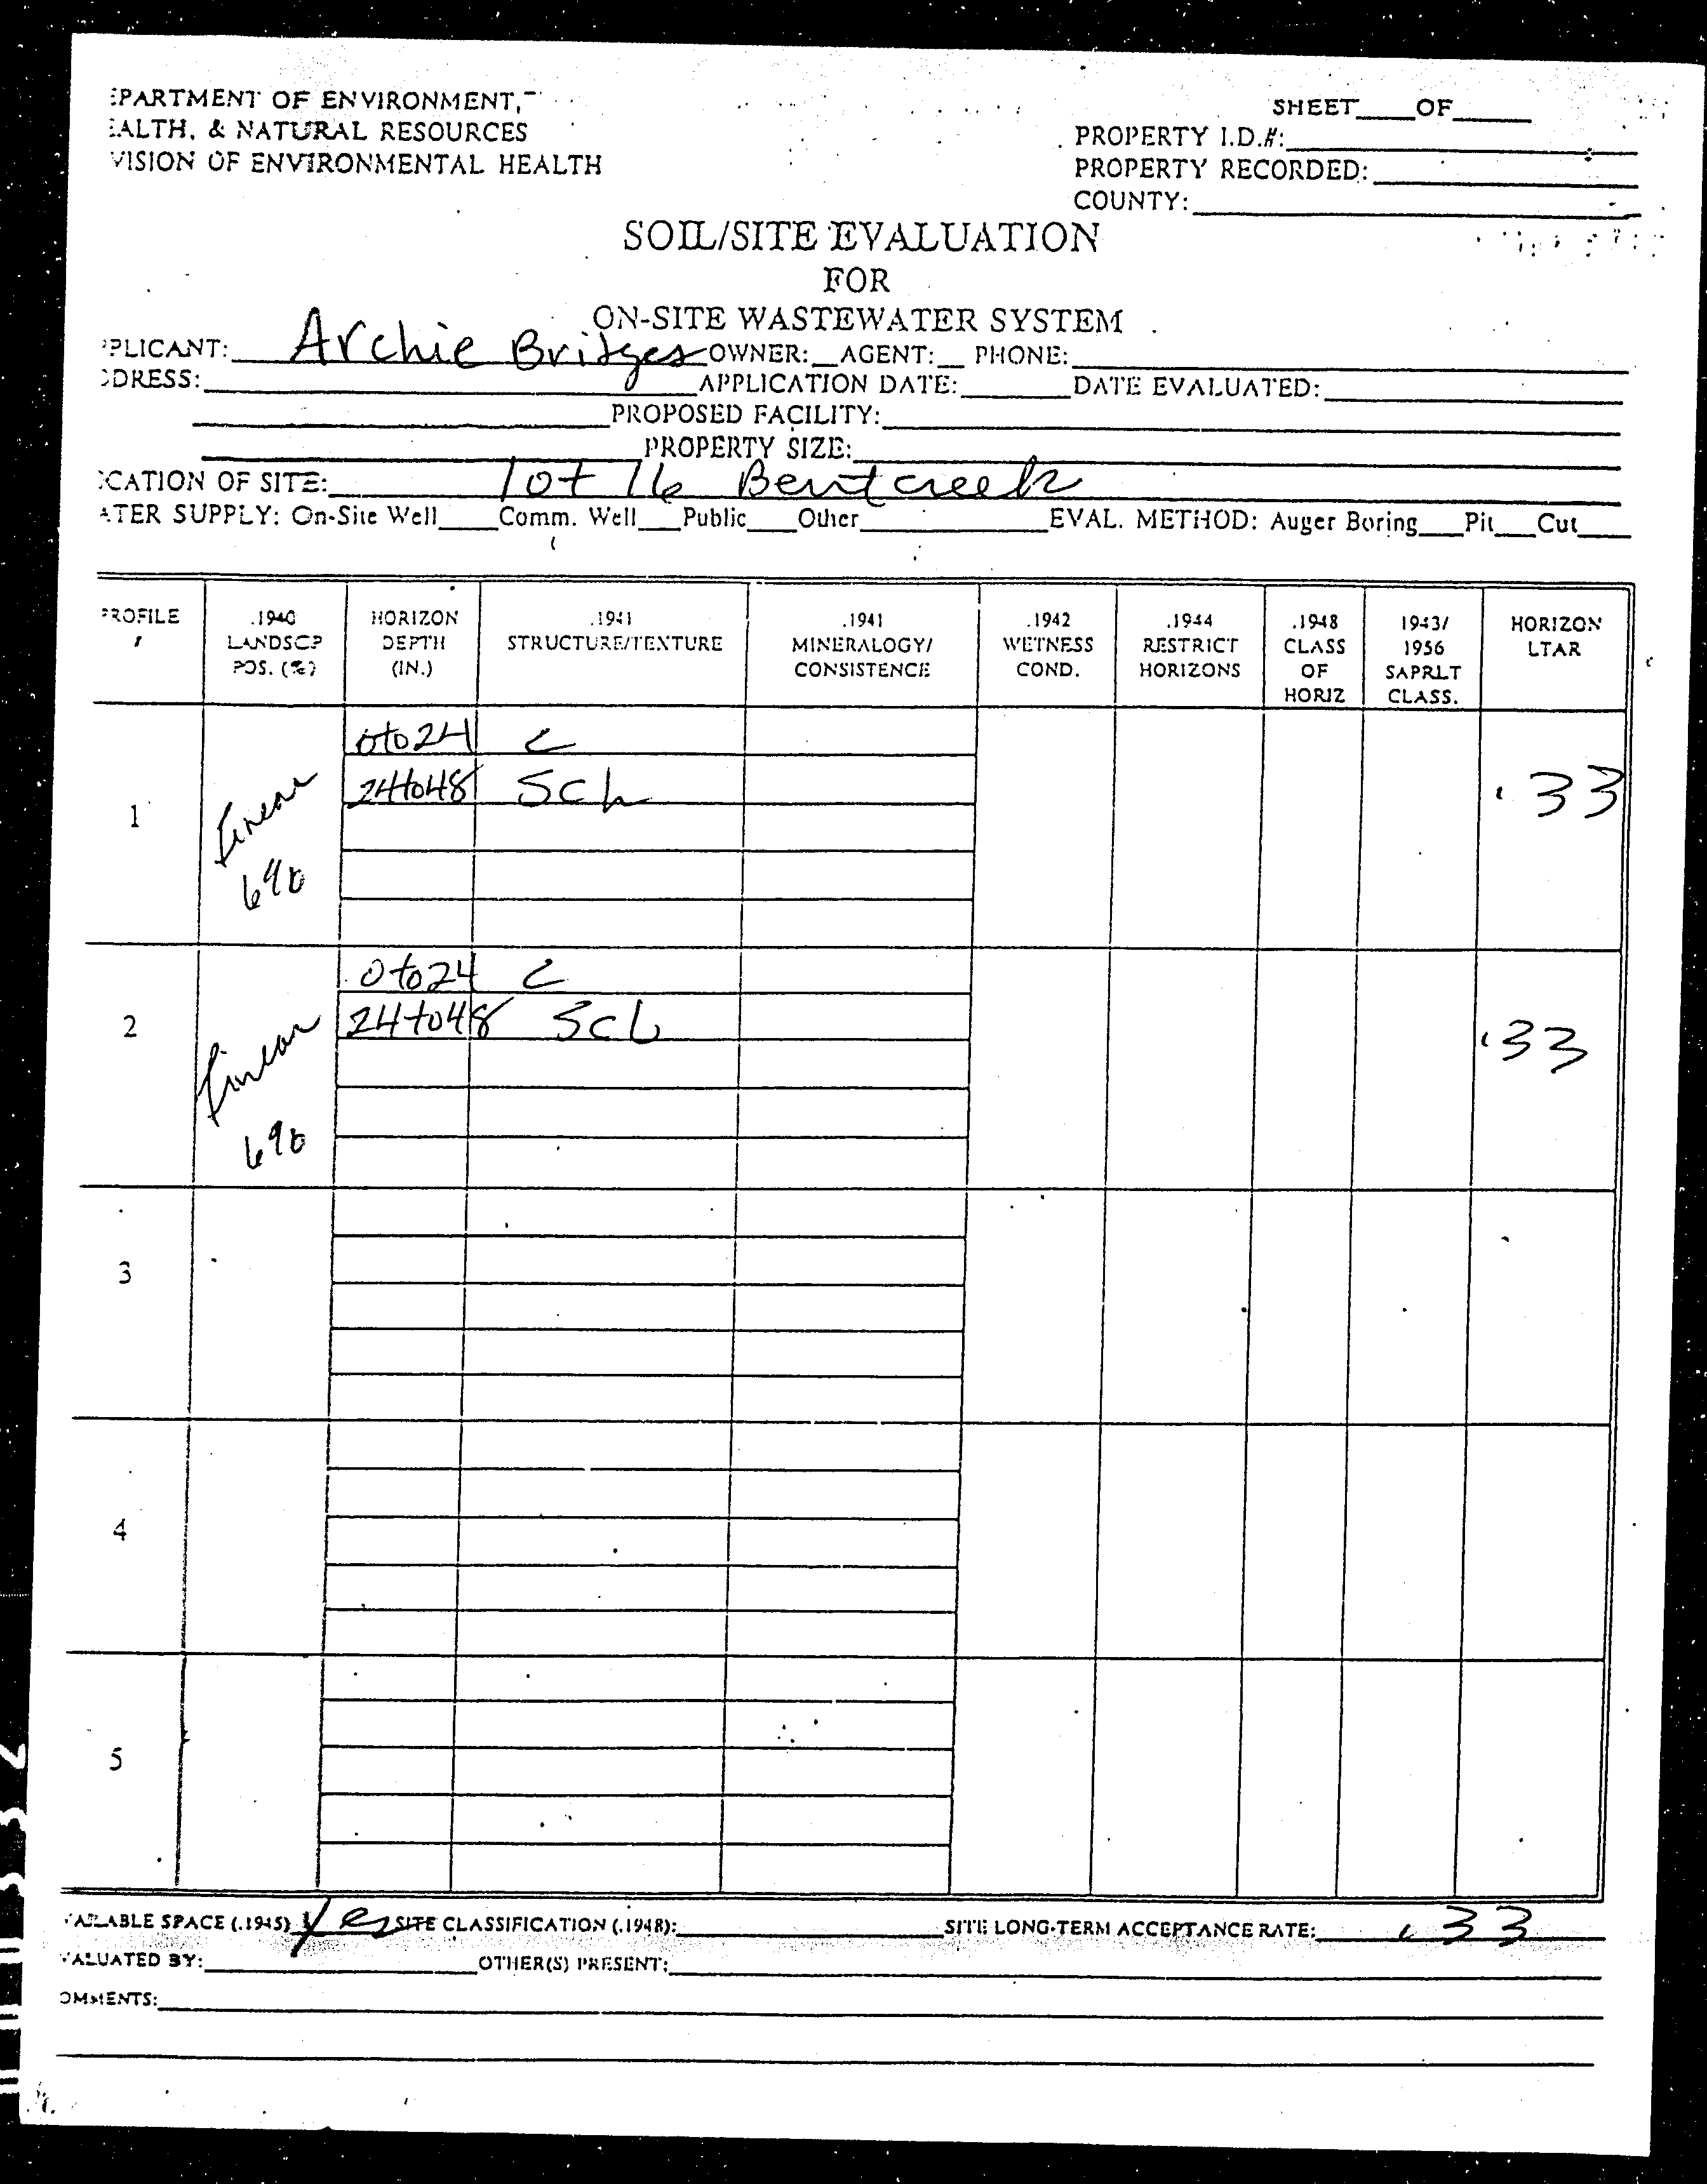 EPARTMENT OF ENVIRONMENT,
EALTH, & NATURAL RESOURCES
VISION OF ENVIRONMENTAL HEALTH
SHEET____OF____
PROPERTY I.D.#:
PROPERTY RECORDED:
COUNTY:
SOIL/SITE EVALUATION
FOR
ON-SITE WASTEWATER SYSTEM
PPLICANT: Archie Bridges OWNER:__AGENT:__ PHONE:
DDRESS: APPLICATION DATE: DATE EVALUATED:
PROPOSED FACILITY:
PROPERTY SIZE:
OCATION OF SITE: lot 16 Bent creek
ATER SUPPLY: On-Site Well____Comm. Well___Public____Other____EVAL. METHOD: Auger Boring___Pit___Cut____
PROFILE # .1940 LANDSCP POS. (%) HORIZON DEPTH (IN.) .1941 STRUCTURE/TEXTURE .1941 MINERALOGY/ CONSISTENCE .1942 WETNESS COND. .1944 RESTRICT HORIZONS .1948 CLASS OF HORIZ 1943/ 1956 SAPRLT CLASS. HORIZON LTAR
0to24 C
1 Linear 24to48 SCL .33
6%
0to24 C
2 Linear 24to48 SCL .33
6%
3
4
5
VAILABLE SPACE (.1945) Yes SITE CLASSIFICATION (.1948): SITE LONG-TERM ACCEPTANCE RATE: .33
VALUATED BY: OTHER(S) PRESENT:
OMMENTS: